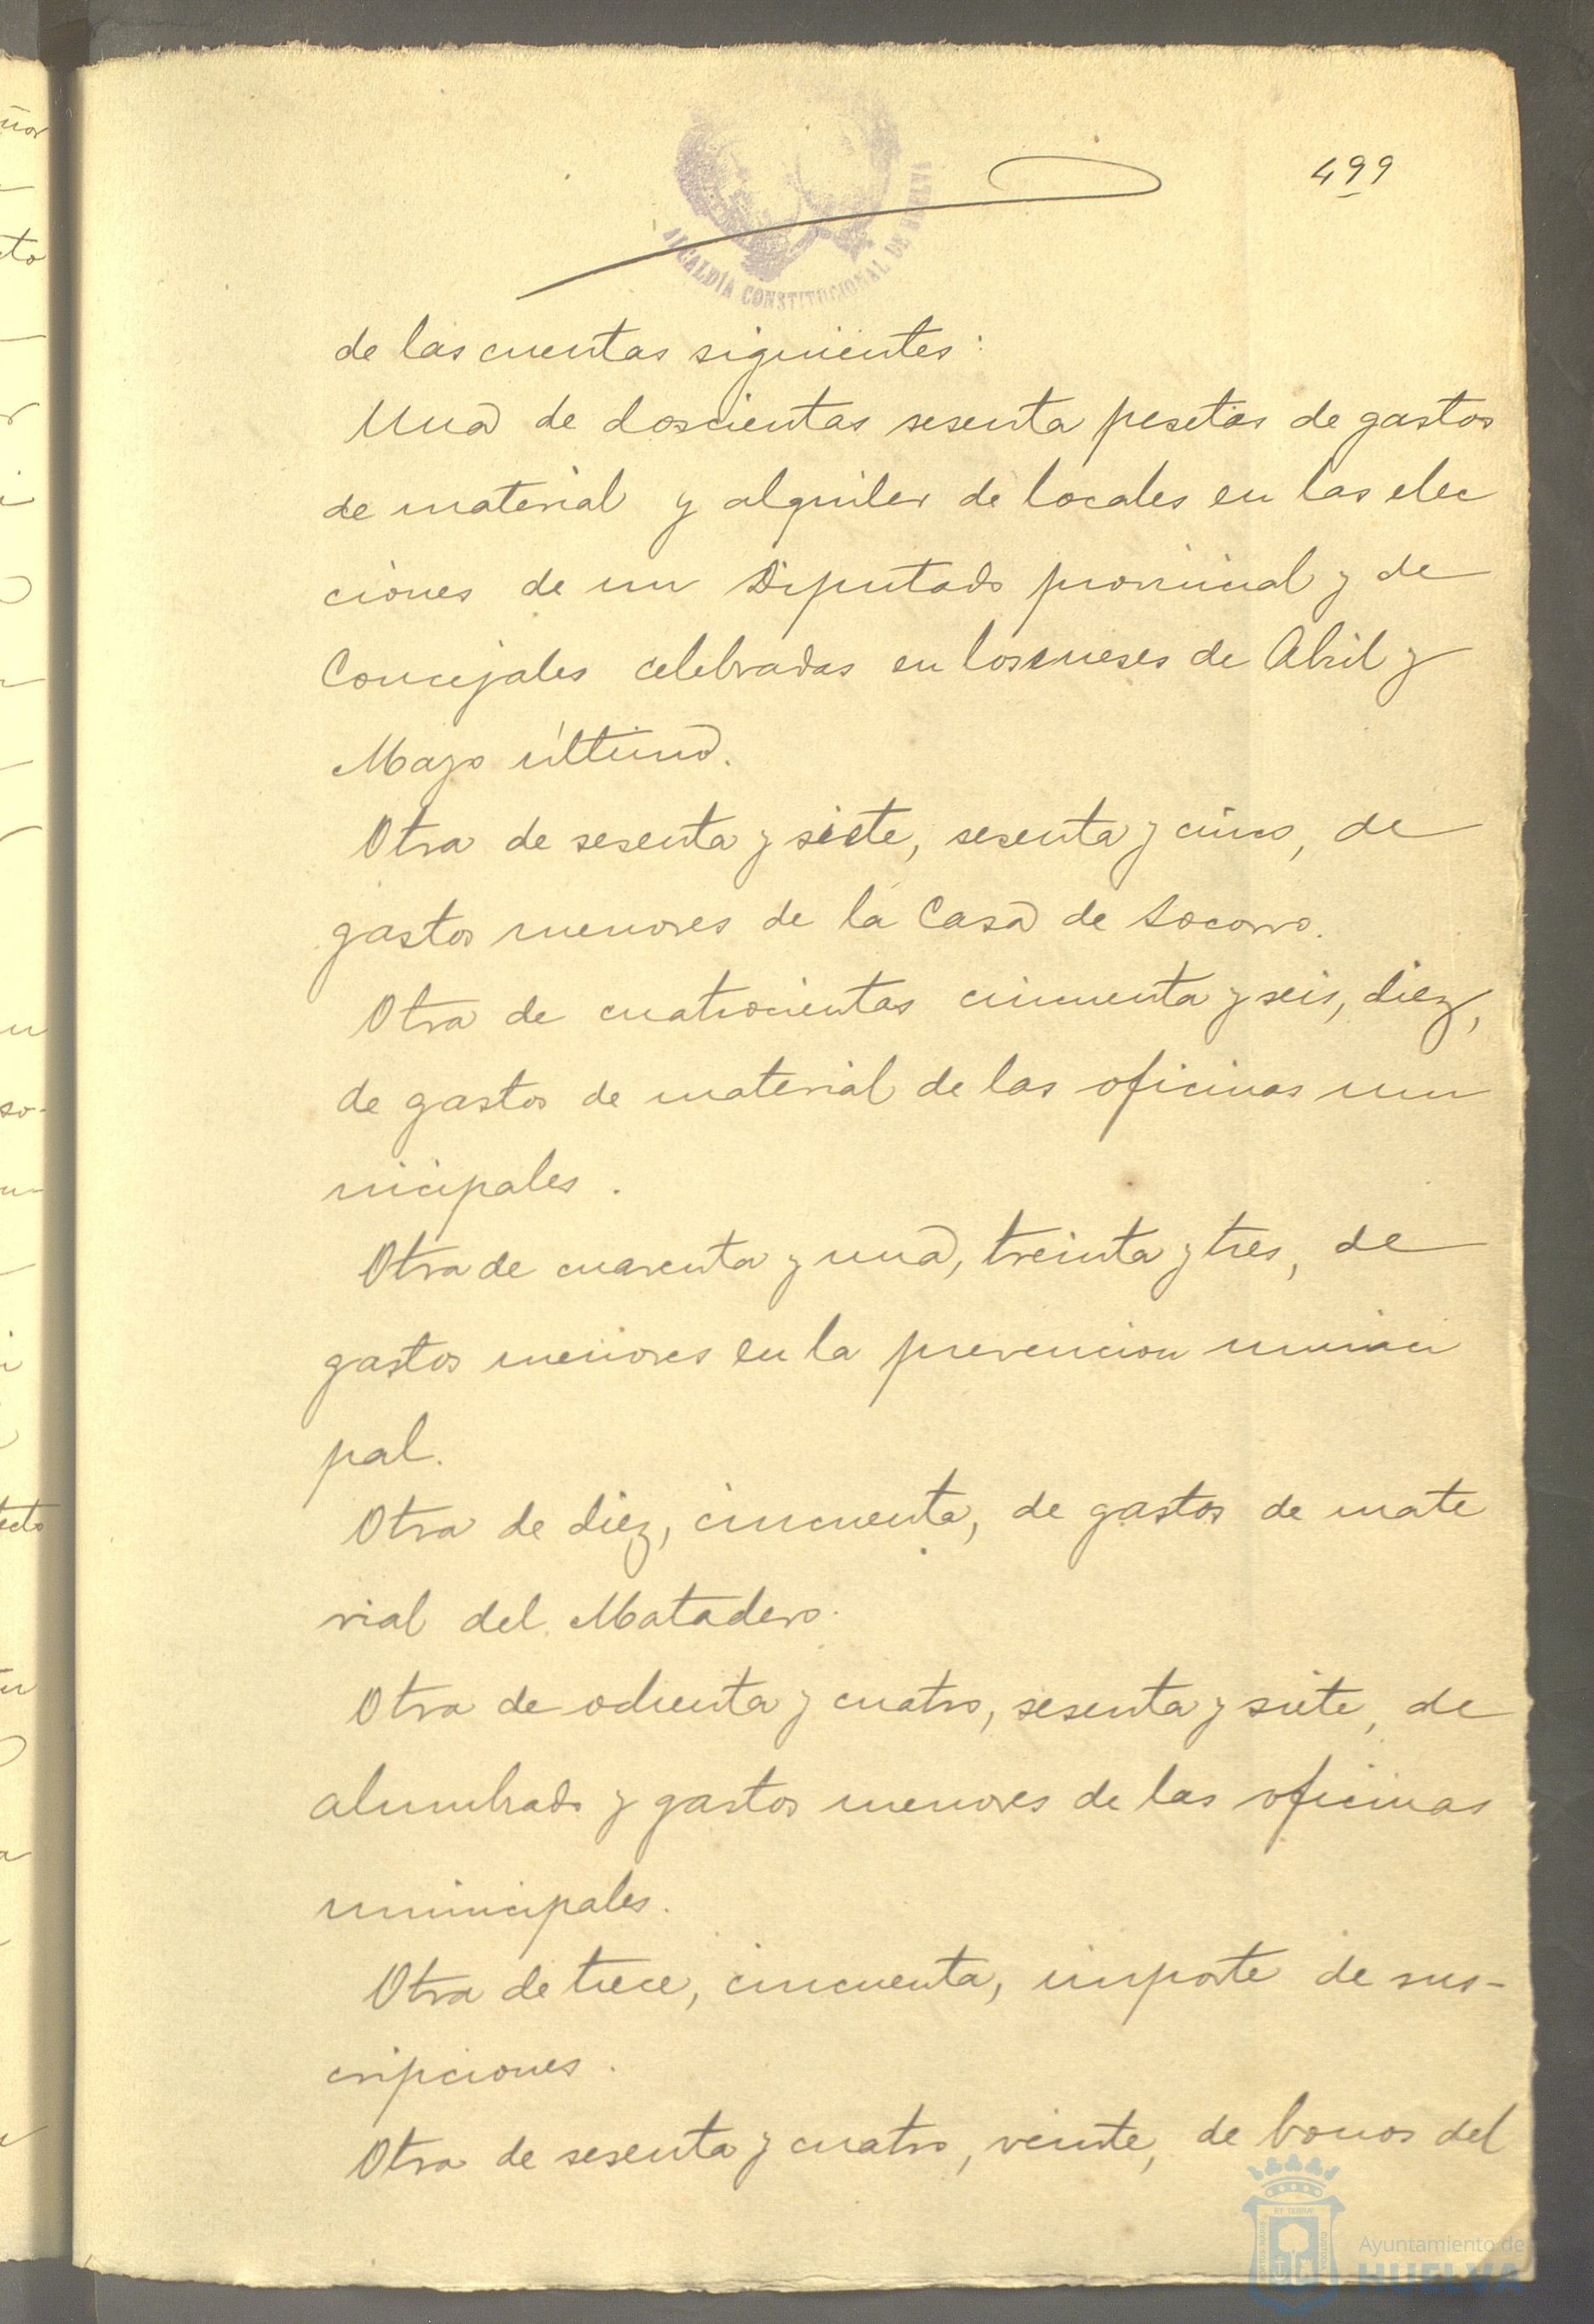 499
ALCALDÍA CONSTITUCIONAL DE HUELVA
de las cuentas siguientes:
Una de doscientas sesenta pesetas de gastos
de material y alquiler de locales en las elec
ciones de un Diputado provincial y de
Concejales celebradas en los meses de Abril y
Mayo último.
Otra de sesenta y siete, sesenta y cinco, de
gastos menores de la Casa de Socorro.
Otra de cuatrocientas cincuenta y seis, diez,
de gastos de material de las oficinas mu
nicipales.
Otra de cuarenta y una, treinta y tres, de
gastos menores en la prevencion munici
pal.
Otra de diez, cincuenta, de gastos de mate
rial del Matadero.
Otra de ochenta y cuatro, sesenta y siete, de
alumbrado y gastos menores de las oficinas
municipales.
Otra de trece, cincuenta, importe de sus-
cripciones.
Otra de sesenta y cuatro, veinte, de bonos del
Ayuntamiento de
HUELVA